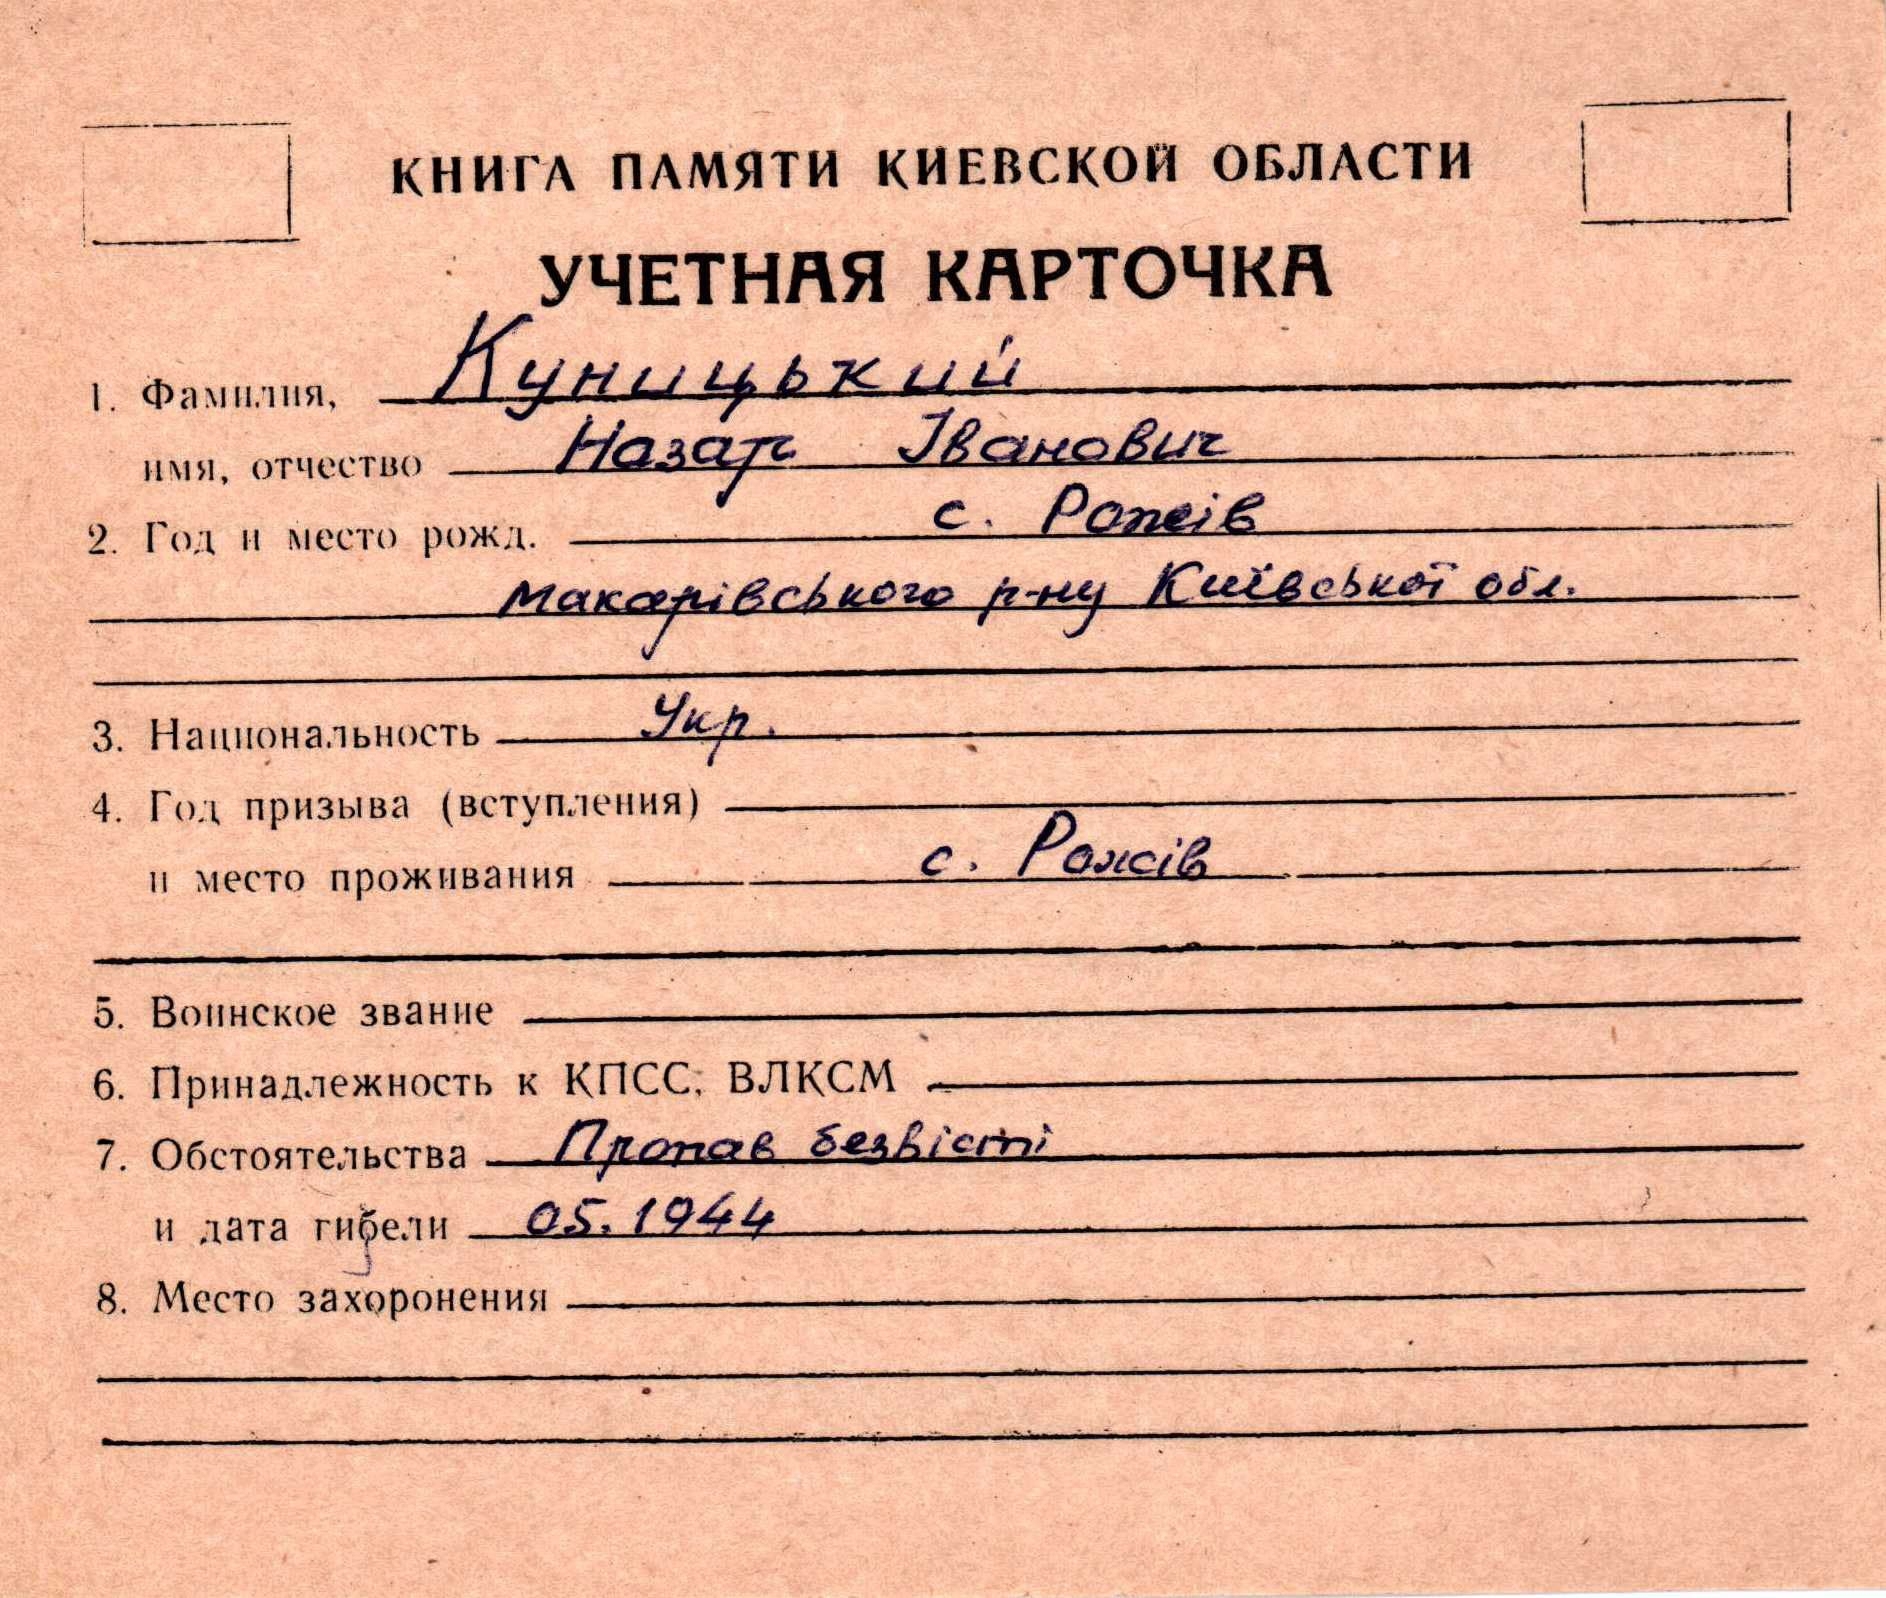 КНИГА ПАМЯТИ КИЕВСКОЙ ОБЛАСТИ
УЧЕТНАЯ КАРТОЧКА
1. Фамилия, Куницький
имя, отчество Назар Іванович
2. Год и место рожд. с. Рожів
Макарівського р-ну Київської обл.
3. Национальность Укр.
4. Год призыва (вступления)
и место проживания с. Рожів
5. Воинское звание
6. Принадлежность к КПСС, ВЛКСМ
7. Обстоятельства Пропав безвісті
и дата гибели 05.1944
8. Место захоронения